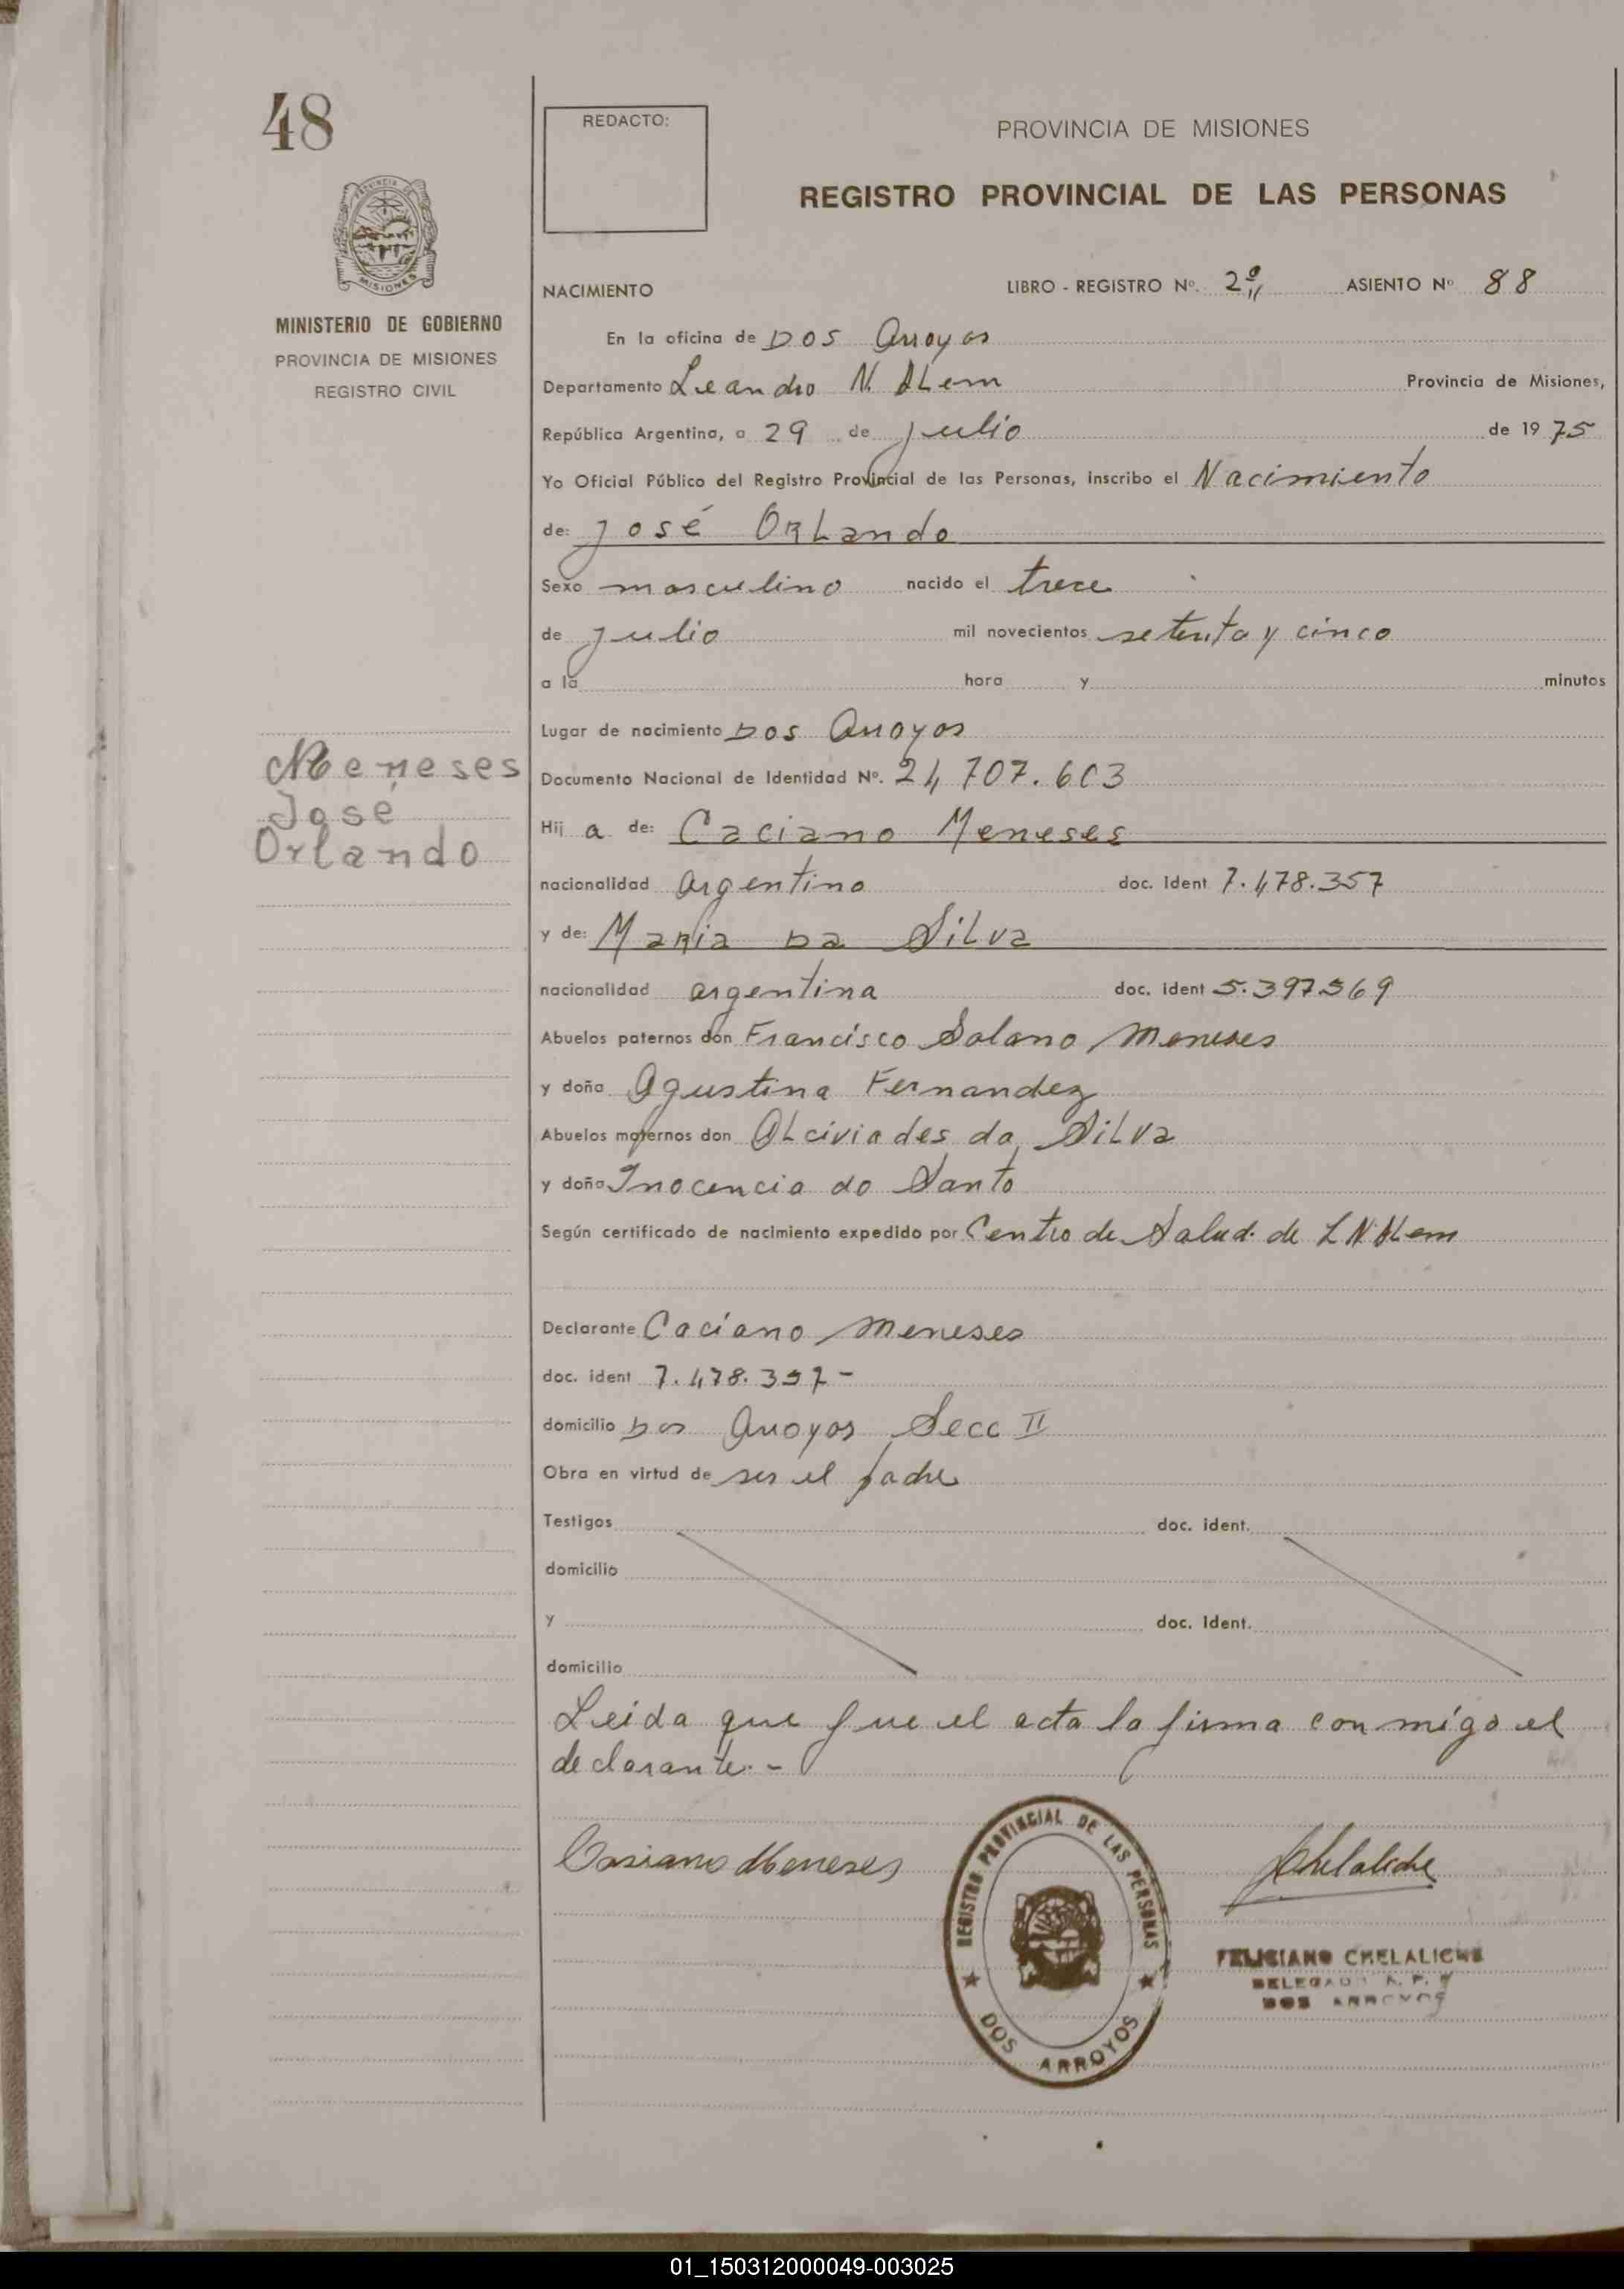 48
PROVINCIA DE MISIONES
MINISTERIO DE GOBIERNO
PROVINCIA DE MISIONES
REGISTRO CIVIL
Meneses
José
Orlando
REDACTO:
PROVINCIA DE MISIONES
REGISTRO PROVINCIAL DE LAS PERSONAS
NACIMIENTO LIBRO - REGISTRO Nº. 2º ASIENTO Nº 88
En la oficina de Dos Arroyos
Departamento Leandro N. Alem Provincia de Misiones,
República Argentina, a 29 de julio de 1975
Yo Oficial Público del Registro Provincial de las Personas, inscribo el Nacimiento
de: José Orlando
Sexo masculino nacido el trece
de julio mil novecientos setenta y cinco
a la hora y minutos
Lugar de nacimiento Dos Arroyos
Documento Nacional de Identidad Nº. 24 707.603
Hij a de: Caciano Meneses
nacionalidad argentino doc. ident 7.478.357
y de: Maria da Silva
nacionalidad argentina doc. ident 5.397.369
Abuelos paternos don Francisco Solano Meneses
y doña Agustina Fernandez
Abuelos maternos don Alciviades da Silva
y doña Inocencia do Santo
Según certificado de nacimiento expedido por Centro de Salud. de L N. Alem
Declarante Caciano Meneses
doc. ident 7.478.357 -
domicilio Dos Arroyos Secc II
Obra en virtud de ser el padre
Testigos doc. ident.
domicilio
y doc. ident.
domicilio
Leida que fue el acta la firma con migo el
declarante. -
Casiano Meneses
Chelaliche
REGISTRO PROVINCIAL DE LAS PERSONAS
DOS ARROYOS
FELICIANO CHELALICHE
DELEGADO R. P. P
DOS ARROYOS
01_150312000049-003025